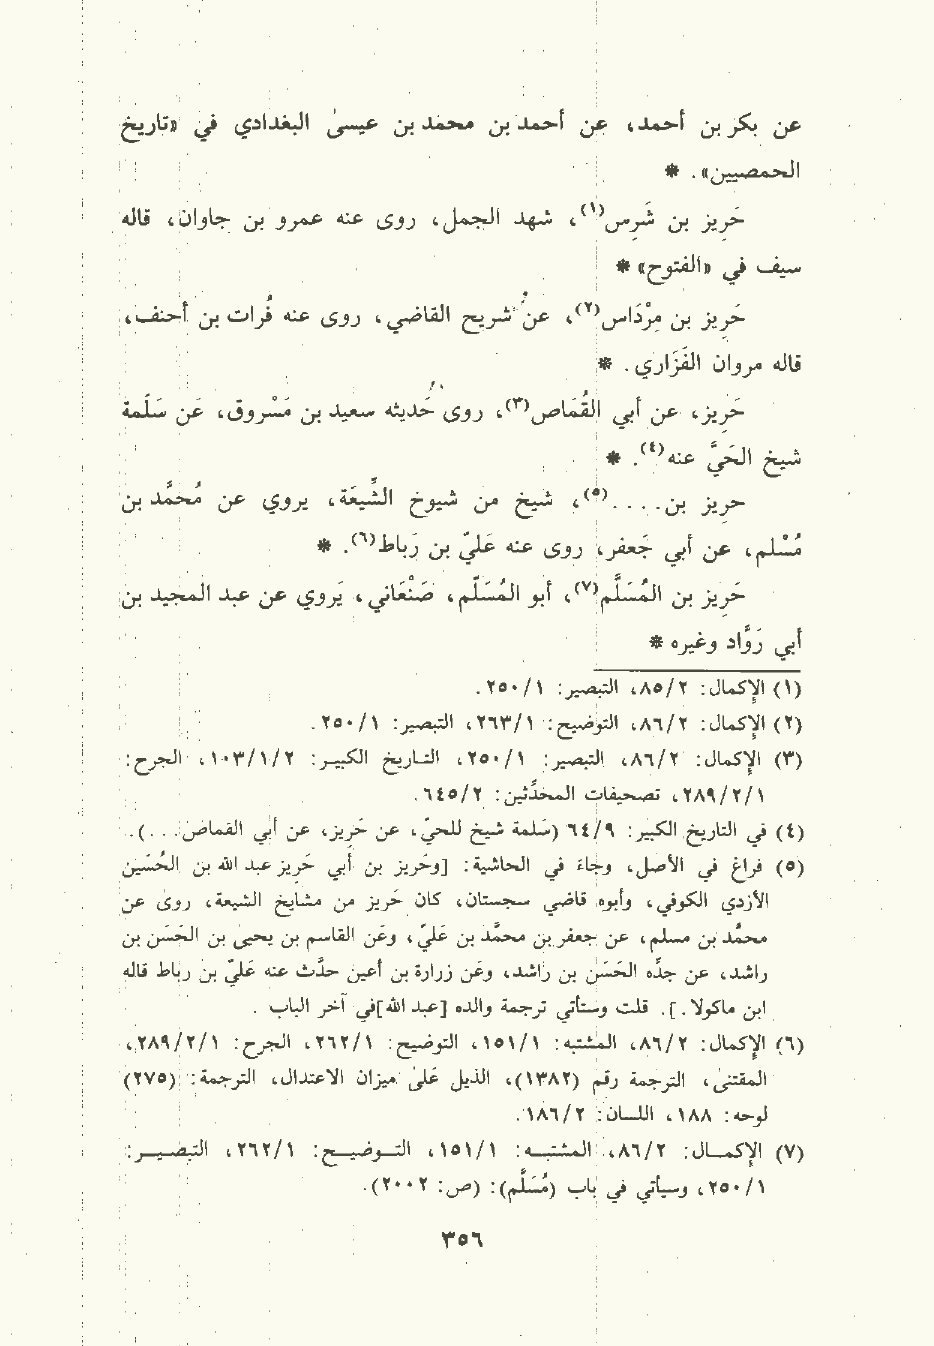 عن بكر بن أحمد، عن أحمد بن محمد بن عيسىٰ البغدادي في «تاريخ
الحمصيين». *
حَرِيز بن شَرِس(١)، شهد الجمل، روى عنه عمرو بن جاوان، قاله
سيف في «الفتوح» *
حَرِيز بن مِرْدَاس(٢)، عن شريح القاضي، روى عنه فُرات بن أحنف،
قاله مروان الفَزَاري. *
حَرِيز، عن أبي القُمَاص(٣)، روى حَديثه سعيد بن مَسْروق، عَن سَلَمة
شيخ الحَيَّ عنه(٤). *
حريز بن....(٥)، شيخ من شيوخ الشِّيعَة، يروي عن مُحمَّد بن
مُسْلم، عن أبي جَعفر، روى عنه عَليّ بن رَباط(٦). *
حَرِيز بن المُسَلَّم(٧)، أبو المُسَلّم، صَنْعَاني، يَروي عن عبد المجيد بن
أبي رَوَّاد وغيره *
(١) الإكمال: ٨٥/٢، التبصير: ٢٥٠/١.
(٢) الإكمال: ٨٦/٢، التوضيح: ٢٦٣/١، التبصير: ٢٥٠/١.
(٣) الإكمال: ٨٦/٢، التبصير: ٢٥٠/١، التاريخ الكبير: ١٠٣/١/٢، الجرح:
٢٨٩/٢/١، تصحيفات المحدِّثين: ٦٤٥/٢.
(٤) في التاريخ الكبير: ٦٤/٩ (سلَمة شيخ للحيّ، عن حَريز، عن أبي القماص...).
(٥) فراغ في الأصل، وجاء في الحاشية: [وحَريز بن أبي حَريز عبد الله بن الحُسَين
الأزدي الكوفي، وأبوه قاضي سجستان، كان حَريز من مشايخ الشيعة، روى عن
محمُّد بن مسلم، عن جعفر بن محمَّد بن عَليّ، وعَن القاسم بن يحيى بن الحَسَن بن
راشد، عن جدِّه الحَسَن بن راشد، وعَن زرارة بن أعين حدَّث عنه عَليّ بن رباط قاله
ابن ماكولا.]. قلت وستأتي ترجمة والده [عبد الله]في آخر الباب.
(٦) الإكمال: ٨٦/٢، المشتبه: ١٥١/١، التوضيح: ٢٦٢/١، الجرح: ٢٨٩/٢/١،
المقتنىٰ، الترجمة رقم (١٣٨٢)، الذيل عَلىٰ ميزان الاعتدال، الترجمة: (٢٧٥)
لوحه: ١٨٨، اللسان: ١٨٦/٢.
(٧) الإكمال: ٨٦/٢، المشتبه: ١٥١/١، التوضيح: ٢٦٢/١، التبصير:
٢٥٠/١، وسيأتي في باب (مُسَلَّم): (ص: ٢٠٠٢).
٣٥٦